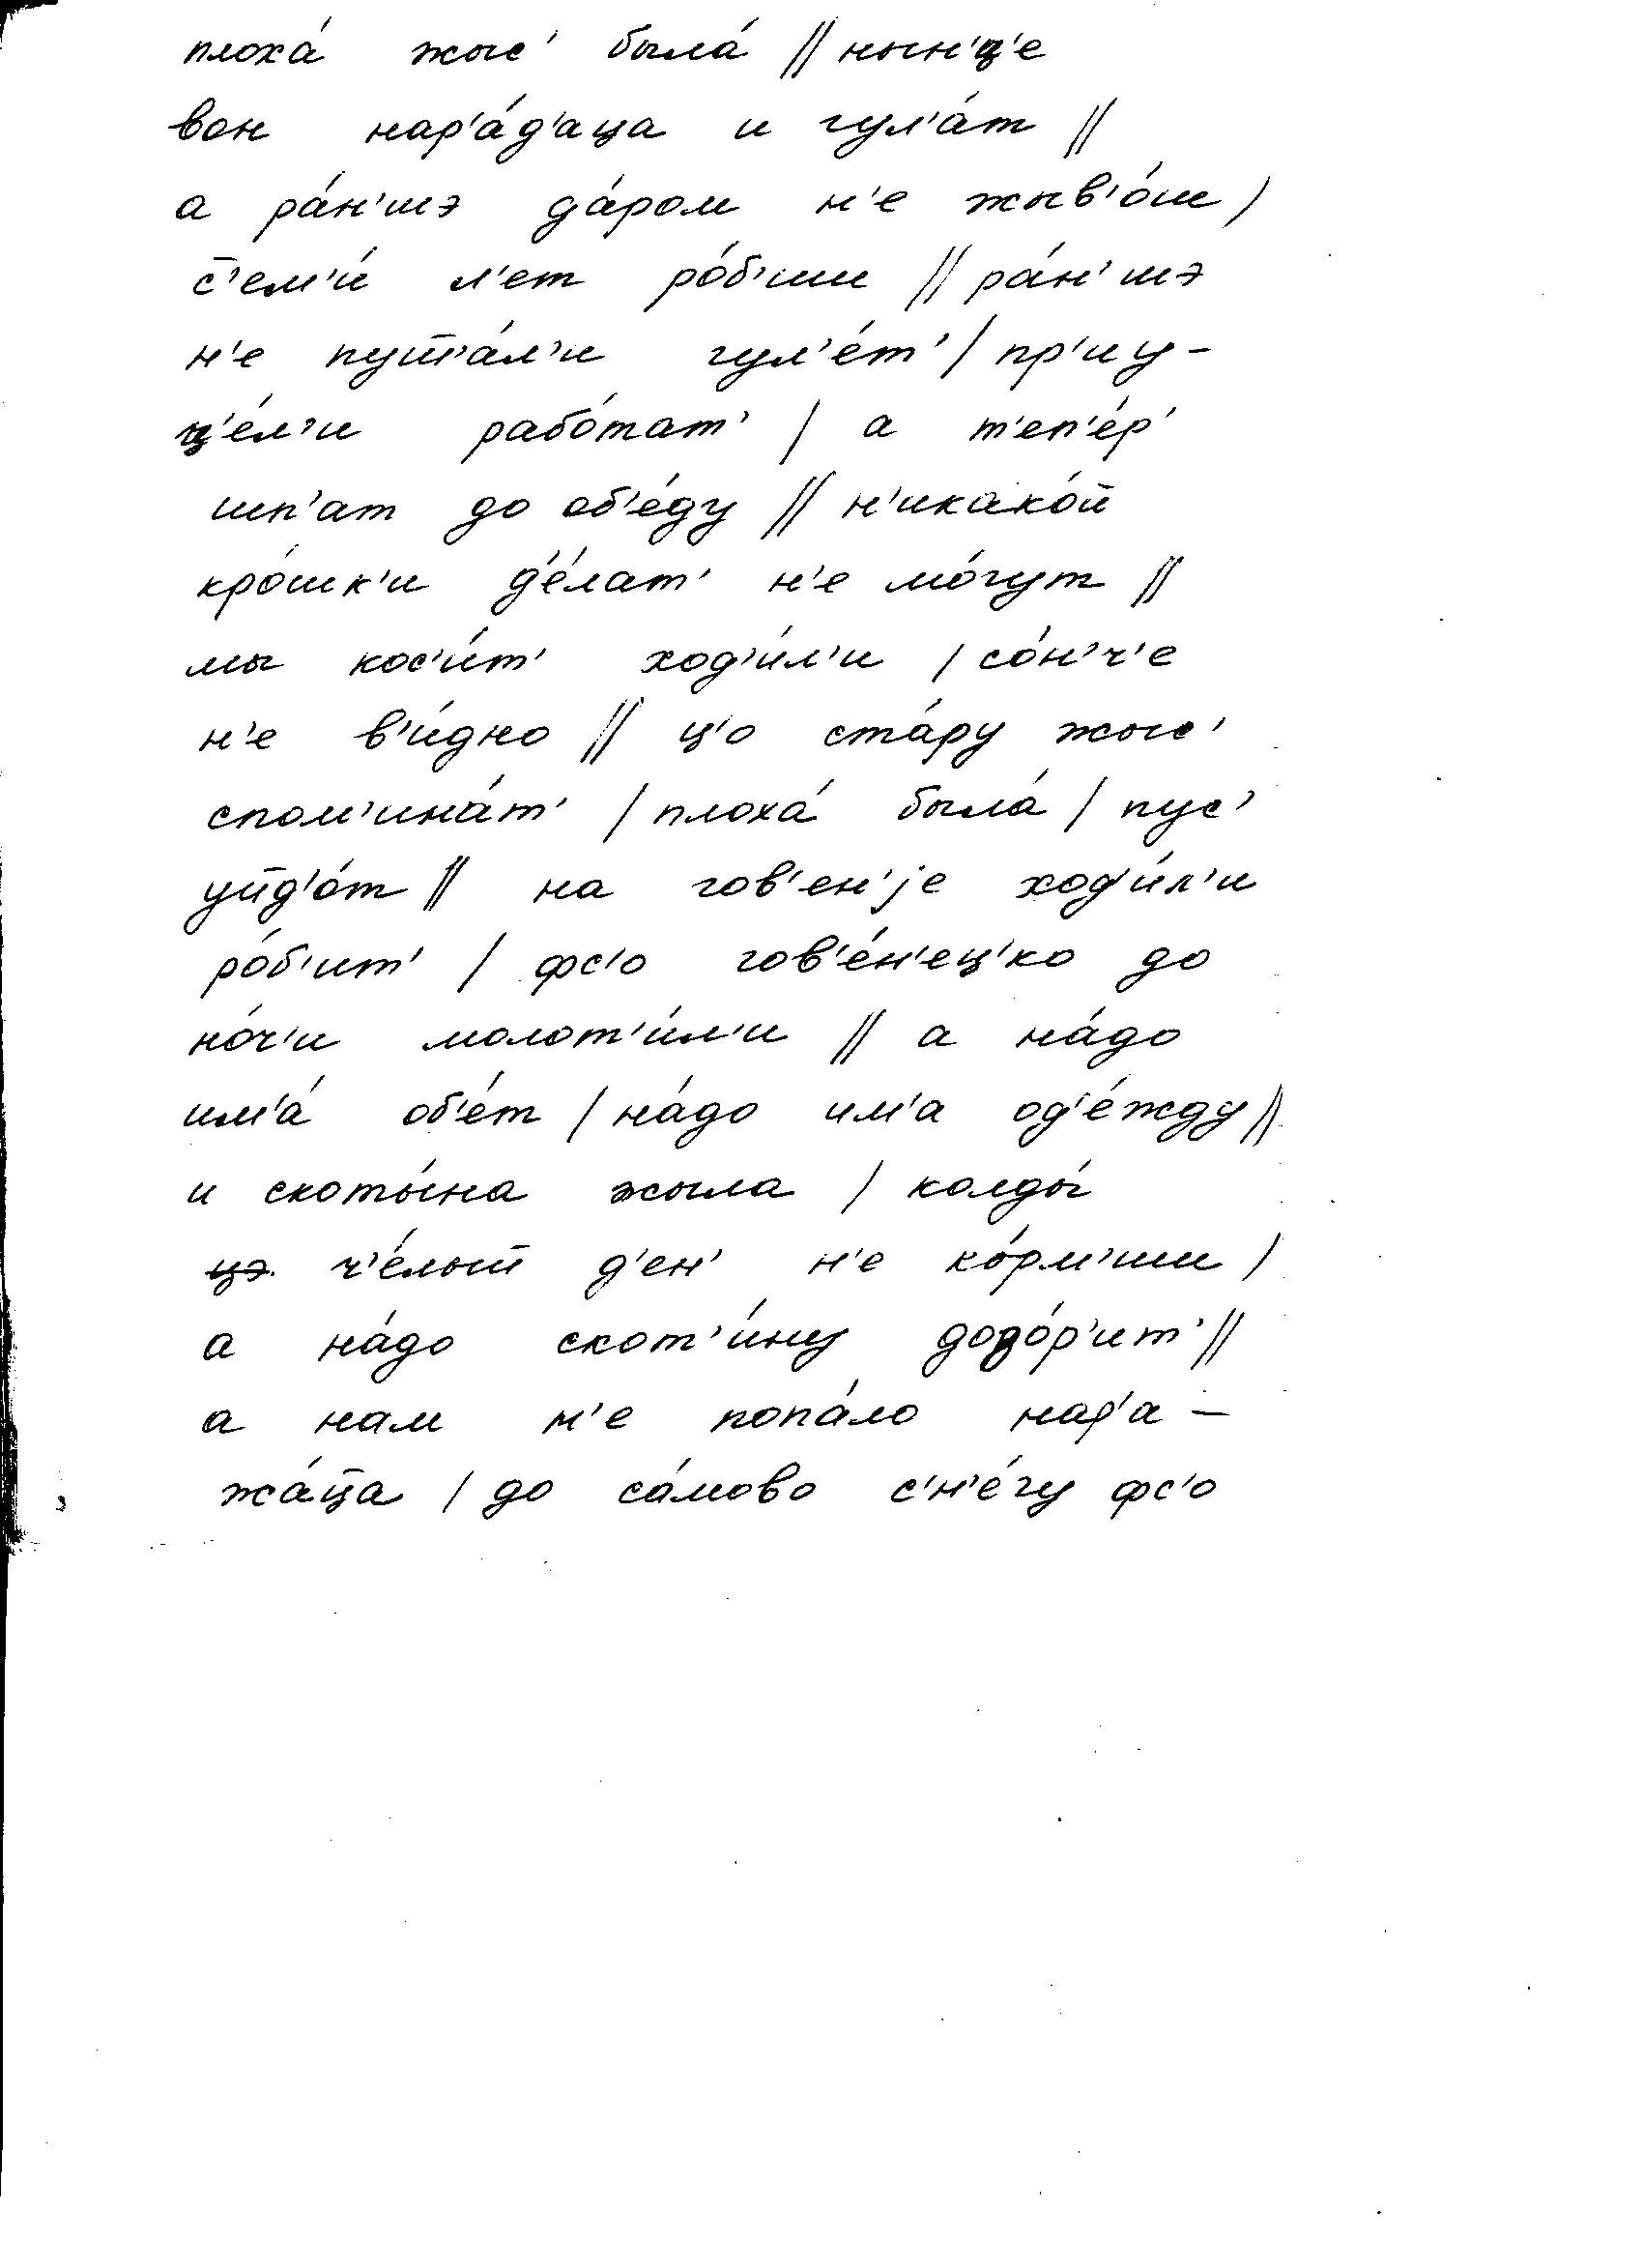 плоха́ жыс' была́ // нын'ц'е
вон нар'а́д'аца и гул'а́т //
а ра́н'шэ да́ром н'е жыв'о́ш /
с̄'ем'и́ л'ет ро́б'иш // ра́н'шэ
н'е пуш̄а́л'и гул'е́т' / пр'иу-
ц'е́л'и рабо́тат' / а т'еп'е́р'
шп'ат до об'е́ду // н'икако́й
кро́шк'и д'е́лат' н'е мо́гут //
мы кос'и́т' ход'и́л'и / со́н'ч'е
н'е в'и́дно // ц'о ста́ру жыс'
спом'ина́т' / плоха́ была́ / пус'
уйд'о́т // на гов'ен'jе ход'и́л'и
ро́б'ит' / фс'о гов'е́н'ец'ко до
но́ч'и молот'и́л'и // а на́до
им'а́ об'е́т / на́до им'а од'е́жду //
и скоты́на жыла / колды́
цэ ч'е́лый д'ен' н'е ко́рм'иш /
а на́до скот'и́ну дозо́р'ит' //
а нам н'е попа́ло нар'а-
жа́ц̄а / до са́мово с'н'е́гу фс'о